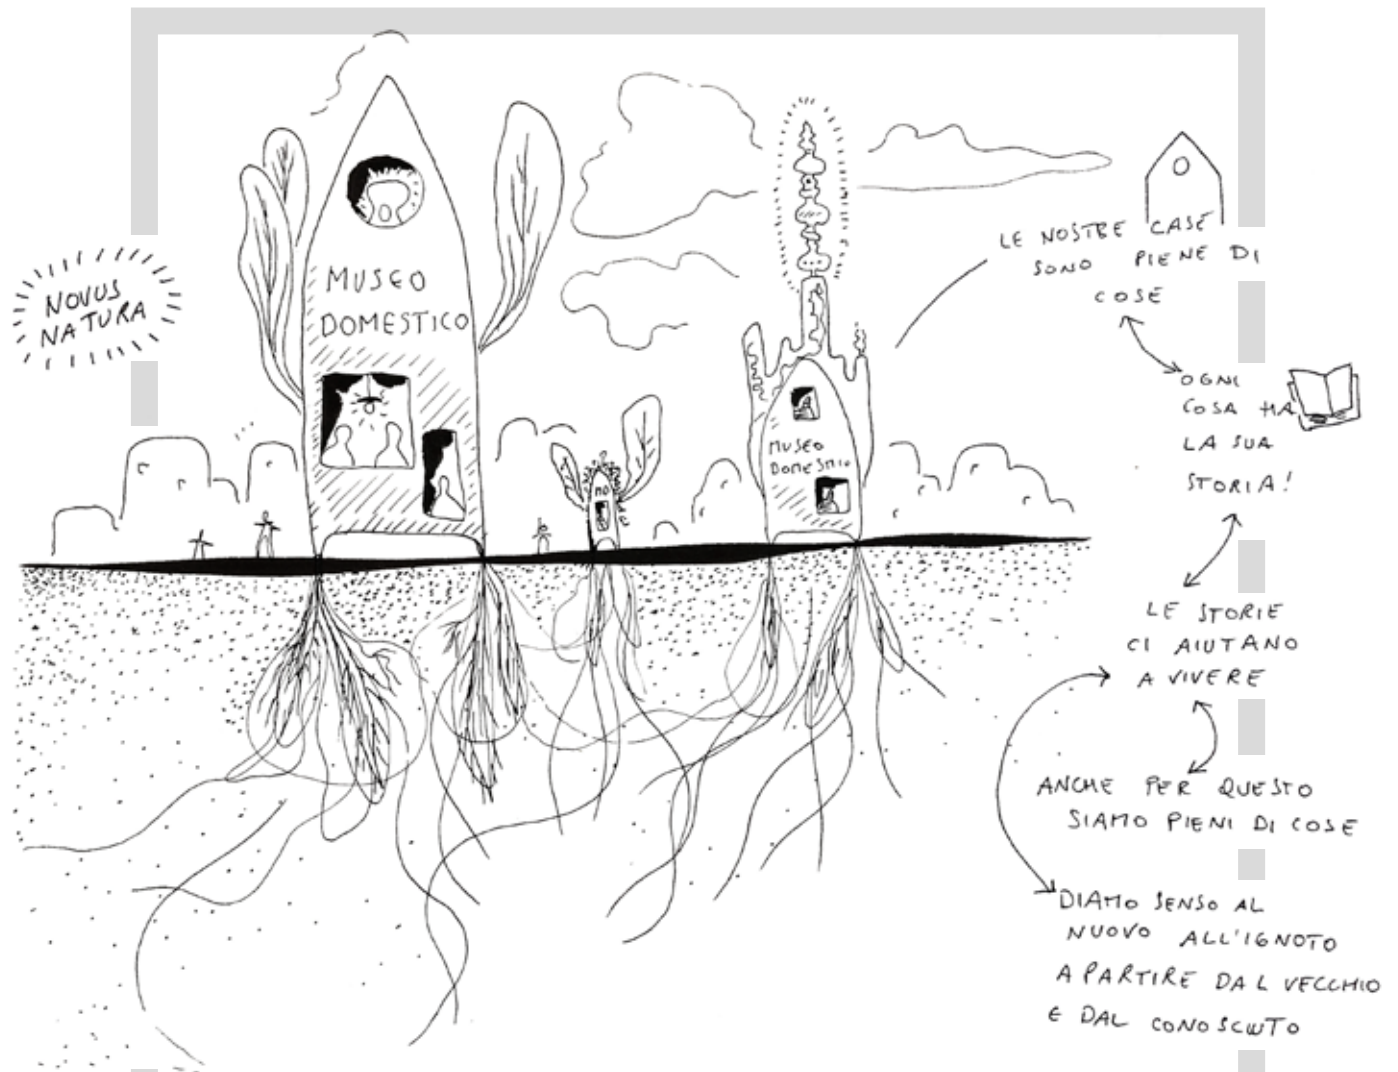 NOVUS
NATURA
MUSEO
DOMESTICO
MUSEO
DOMESTICO
LE NOSTRE CASE
SONO PIENE DI
COSE
OGNI
COSA HA
LA SUA
STORIA!
LE STORIE
CI AIUTANO
A VIVERE
ANCHE PER QUESTO
SIAMO PIENI DI COSE
DIAMO SENSO AL
NUOVO ALL'IGNOTO
A PARTIRE DAL VECCHIO
E DAL CONOSCIUTO